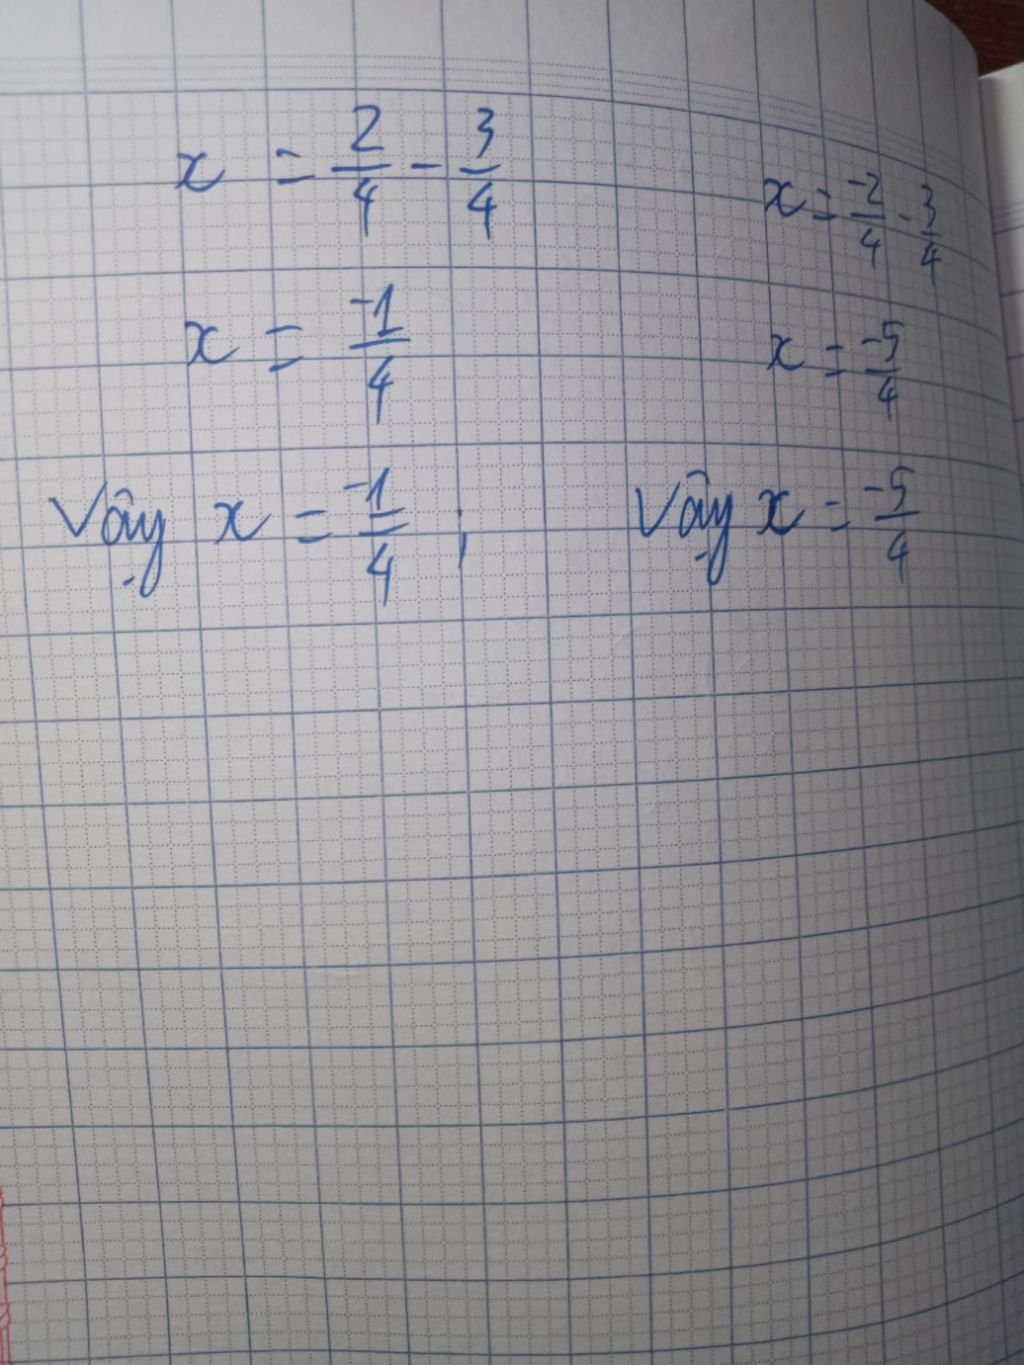 x = 2/4 - 3/4
x = -2/4 - 3/4
x = -1/4
x = -5/4
Vậy x = -1/4 ;
Vậy x = -5/4